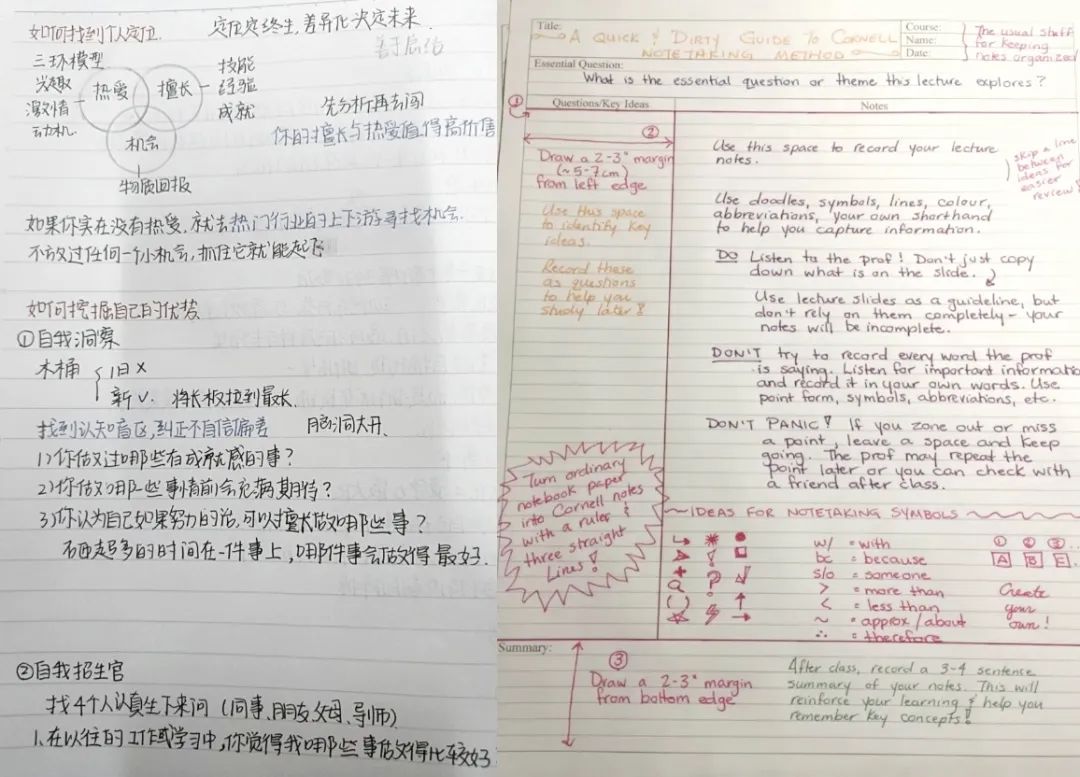 如何找到个人定位.
定位定终生,差异化决定未来.
善于启始
三环模型
兴趣
热爱
擅长
技能
经验
成就
深刻情
动机
机会
物质回报
先分析再去闯
你的擅长与热爱值得高价售
如果你实在没有热爱,就去热门行业的上下游寻找机会.
不放过任何一个小机会,抓住它就能起飞
如何挖掘自己的优势
①自我洞察
木桶
旧 X
新 v. 将长板拉到最长.
找到认知盲区,纠正不自信偏差
脑洞大开.
1)你做过哪些有成就感的事?
2)你做哪些事情前会充满期待?
3)你认为自己如果努力的话,可以擅长做哪些事?
花更多的时间在一件事上,哪件事会做得最好.
②自我招生官
找4个人认真坐下来问(同事、朋友、父母、导师)
1.在以往的工作或学习中,你觉得我哪些事做得比较好
Title:
A QUICK & DIRTY GUIDE TO CORNELL
NOTETAKING METHOD
Course:
Name:
Date:
The usual stuff
for keeping
notes organized
Essential Question:
What is the essential question or theme this lecture explores?
Questions/Key Ideas
Notes
①
②
Draw a 2-3" margin
(~5-7cm)
from left edge
Use this space
to identify key
ideas.
Record these
as questions
to help you
study later!
Use this space to record your lecture
notes.
skip a line
between
ideas for
easier
review!
Use doodles, symbols, lines, colour,
abbreviations, your own shorthand
to help you capture information.
DO Listen to the prof! Don't just copy
down what is on the slide.
Use lecture slides as a guideline, but
don't rely on them completely - your
notes will be incomplete.
DON'T try to record every word the prof
is saying. Listen for important informatio
and record it in your own words. Use
point form, symbols, abbreviations, etc.
DON'T PANIC! If you zone out or miss
a point, leave a space and keep
going. The prof may repeat the
point later or you can check with
a friend after class.
Turn ordinary
notebook paper
into Cornell notes
with a ruler &
three straight
Lines!
IDEAS FOR NOTETAKING SYMBOLS
w/ = with
bc = because
s/o = someone
> = more than
< = less than
~ = approx/about
∴ = therefore
① ② ③...
A B E...
Create
your
own!
Summary:
③
Draw a 2-3" margin
from bottom edge
After class, record a 3-4 sentence
summary of your notes. This will
reinforce your learning & help you
remember key concepts!